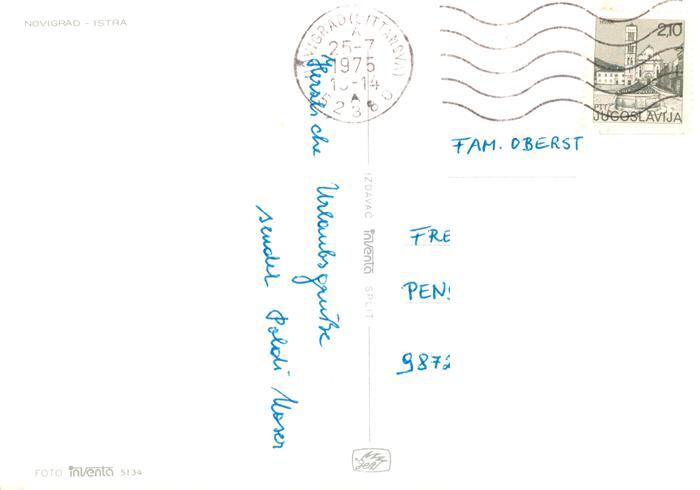 NOVIGRAD - ISTRA
NOVIGRAD (CITTANOVA)
A
25-7
1975
-14
52386
2,10
PTT
JUGOSLAVIJA
FAM. OBERST
FRE
PEN
9872
Urlaubsgrüße
sendet Poldi Moser
IZDAVAČ inventa SPLIT
FOTO inventa 5134